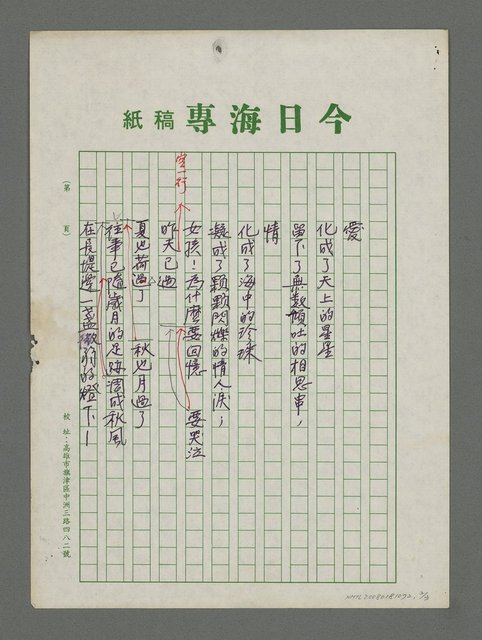 今日海專稿紙
空一行
愛
化成了天上的星星
留下了無數傾吐的相思串，
情
化成了海中的珍珠
凝成了顆顆閃爍的情人淚；
女孩！為什麼要回憶　要哭泣
昨天已過
夏也荷過了　秋也月過了
往事已隨歲月的足跡凋成秋風
在長堤邊一盞微弱的燈下！
（第　頁）
校址：高雄市旗津區中洲三路四八二號
NMTL20080181092, 2/3